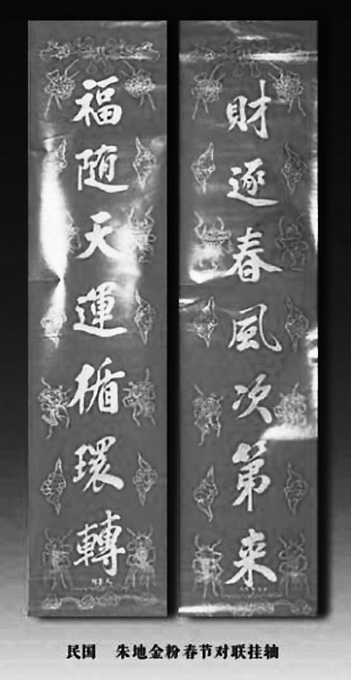 財逐春風次第来
福随天運循環轉
民国 朱地金粉春节对联挂轴